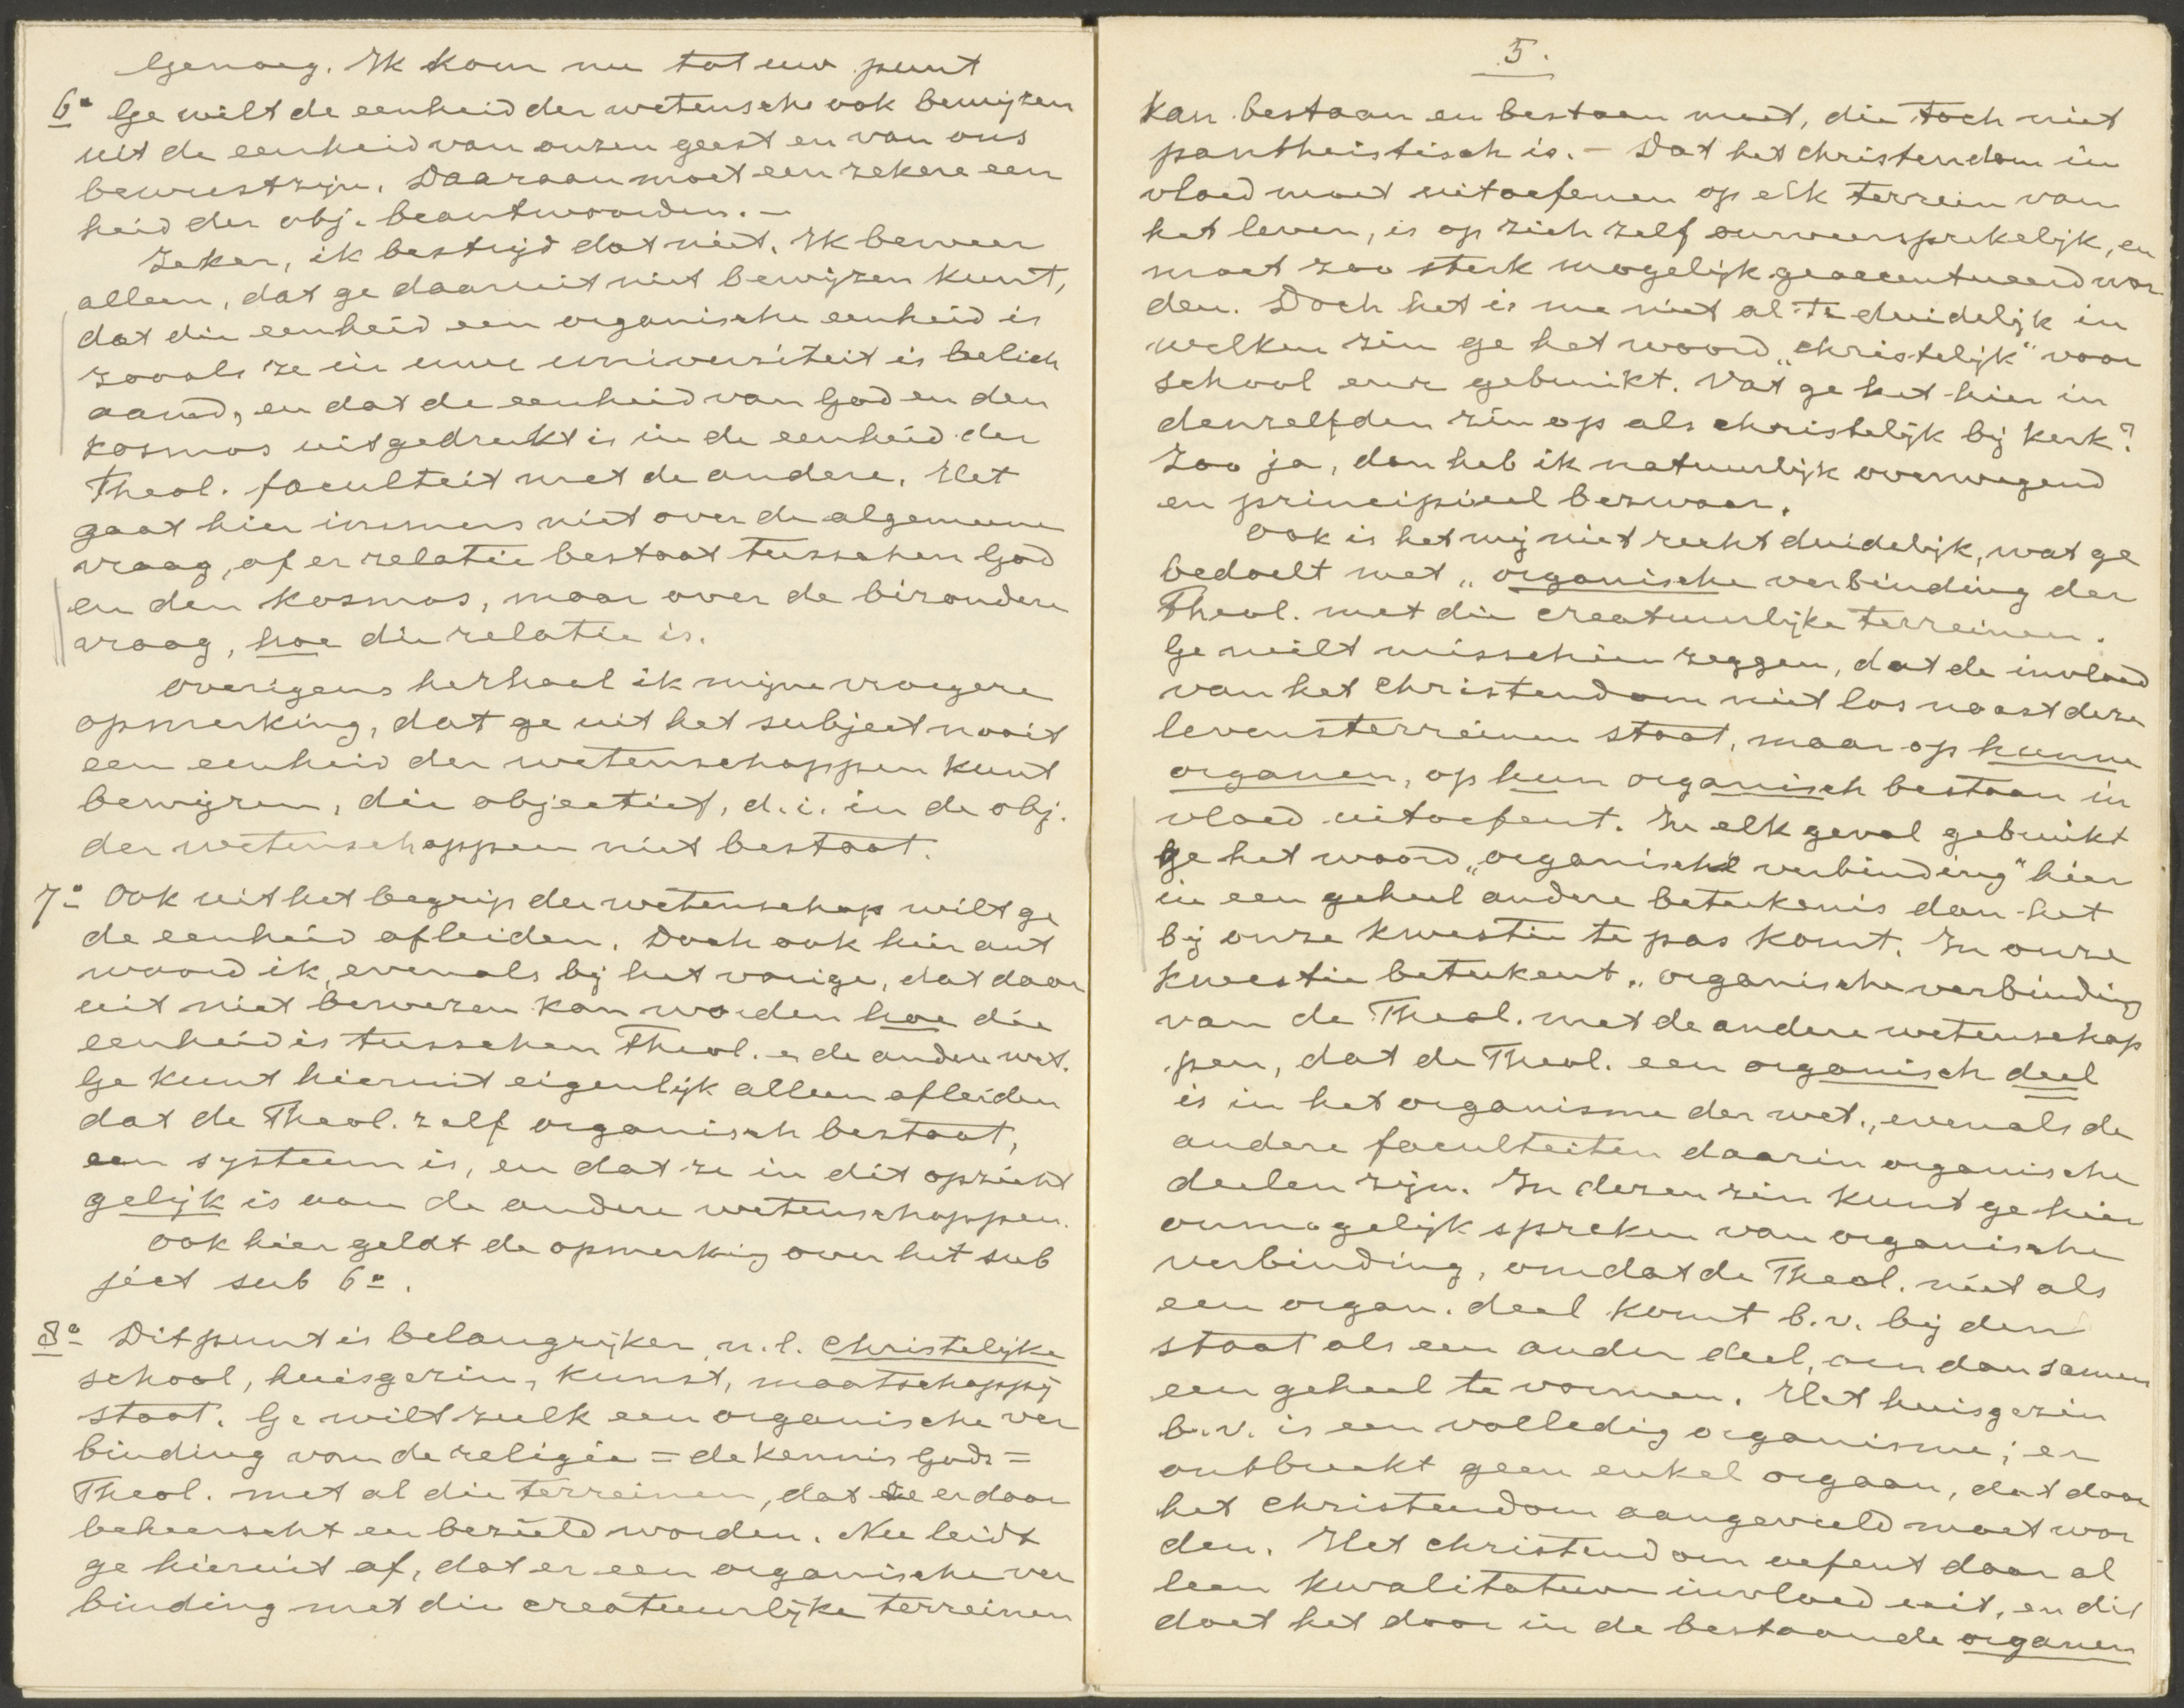 Genoeg. Ik kom nu tot uw punt
6º Ge wilt de eenheid der wetensch. ook bewijzen
uit de eenheid van onzen geest en van ons
bewustzijn. Daaraan moet een zekere een
heid der obj. beantwoorden. –
Zeker, ik bestrijd dat niet. Ik beweer
alleen, dat ge daaruit niet bewijzen kunt,
dat die eenheid een organische eenheid is
zooals ze in uwe universiteit is belich
aamd, en dat de eenheid van God en den
kosmos uitgedrukt is in de eenheid der
Theol. faculteit met de andere. Het
gaat hier immers niet over de algemeene
vraag, of er relatie bestaat tusschen God
en den kosmos, maar over de bizondere
vraag, hoe die relatie is.
Overigens herhaal ik mijne vroegere
opmerking, dat ge uit het subject nooit
een eenheid der wetenschappen kunt
bewijzen, die objectief, d.i. in de obj.
der wetenschappen niet bestaat.
7º Ook uit het begrip der wetenschap wilt ge
de eenheid afleiden. Doch ook hier ant
woord ik, evenals bij het vorige, dat daar
uit niet bewezen kan worden hoe die
eenheid is tusschen Theol. en de andere wet.
Ge kunt hieruit eigenlijk alleen afleiden
dat de Theol. zelf organisch bestaat,
een systeem is, en dat ze in dit opzicht
gelijk is aan de andere wetenschappen.
Ook hier geldt de opmerking over het sub
ject sub 6º.
8º Dit punt is belangrijker, n.l. Christelijke
school, huisgezin, kunst, maatschappij
staat. Ge wilt zulk een organische ver
binding van de religie = de kennis Gods =
Theol. met al die terreinen, dat ze er door
beheerscht en bezield worden. Nu leidt
ge hieruit af, dat er een organische ver
binding met die creatuurlijke terreinen
5.
kan bestaan en bestaan moet, die toch niet
pantheistisch is. – Dat het christendom in
vloed moet uitoefenen op elk terrein van
het leven, is op zich zelf onweersprekelijk, en
moet zoo sterk mogelijk geaccentueerd wor
den. Doch het is me niet al te duidelijk in
welken zin ge het woord „christelijk" voor
school enz. gebruikt. Vat ge het hier in
denzelfden zin op als christelijk bij kerk?
Zoo ja, dan heb ik natuurlijk overwegend
en principieel bezwaar.
Ook is het mij niet recht duidelijk, wat ge
bedoelt met „organische verbinding der
Theol. met die creatuurlijke terreinen.
Ge wilt misschien zeggen, dat de invloed
van het Christendom niet los naast deze
levensterreinen staat, maar op hunne
organen, op hun organisch bestaan in
vloed uitoefent. In elk geval gebruikt
ge het woord „organische verbinding" hier
in een geheel andere beteekenis dan het
bij onze kwestie te pas komt. In onze
kwestie beteekent „organische verbinding
van de Theol. met de andere wetenschap
pen, dat de Theol. een organisch deel
is in het organisme der wet., evenals de
andere faculteiten daarin organische
deelen zijn. In dezen zin kunt ge hier
onmogelijk spreken van organische
verbinding, omdat de Theol. niet als
een organ. deel komt b.v. bij den
staat als een ander deel, om dan samen
een geheel te vormen. Het huisgezin
b.v. is een volledig organisme; er
ontbreekt geen enkel orgaan, dat door
het Christendom aangevuld moet wor
den. Het Christendom oefent daar al
leen kwalitatieven invloed uit, en dit
doet het door in de bestaande organen